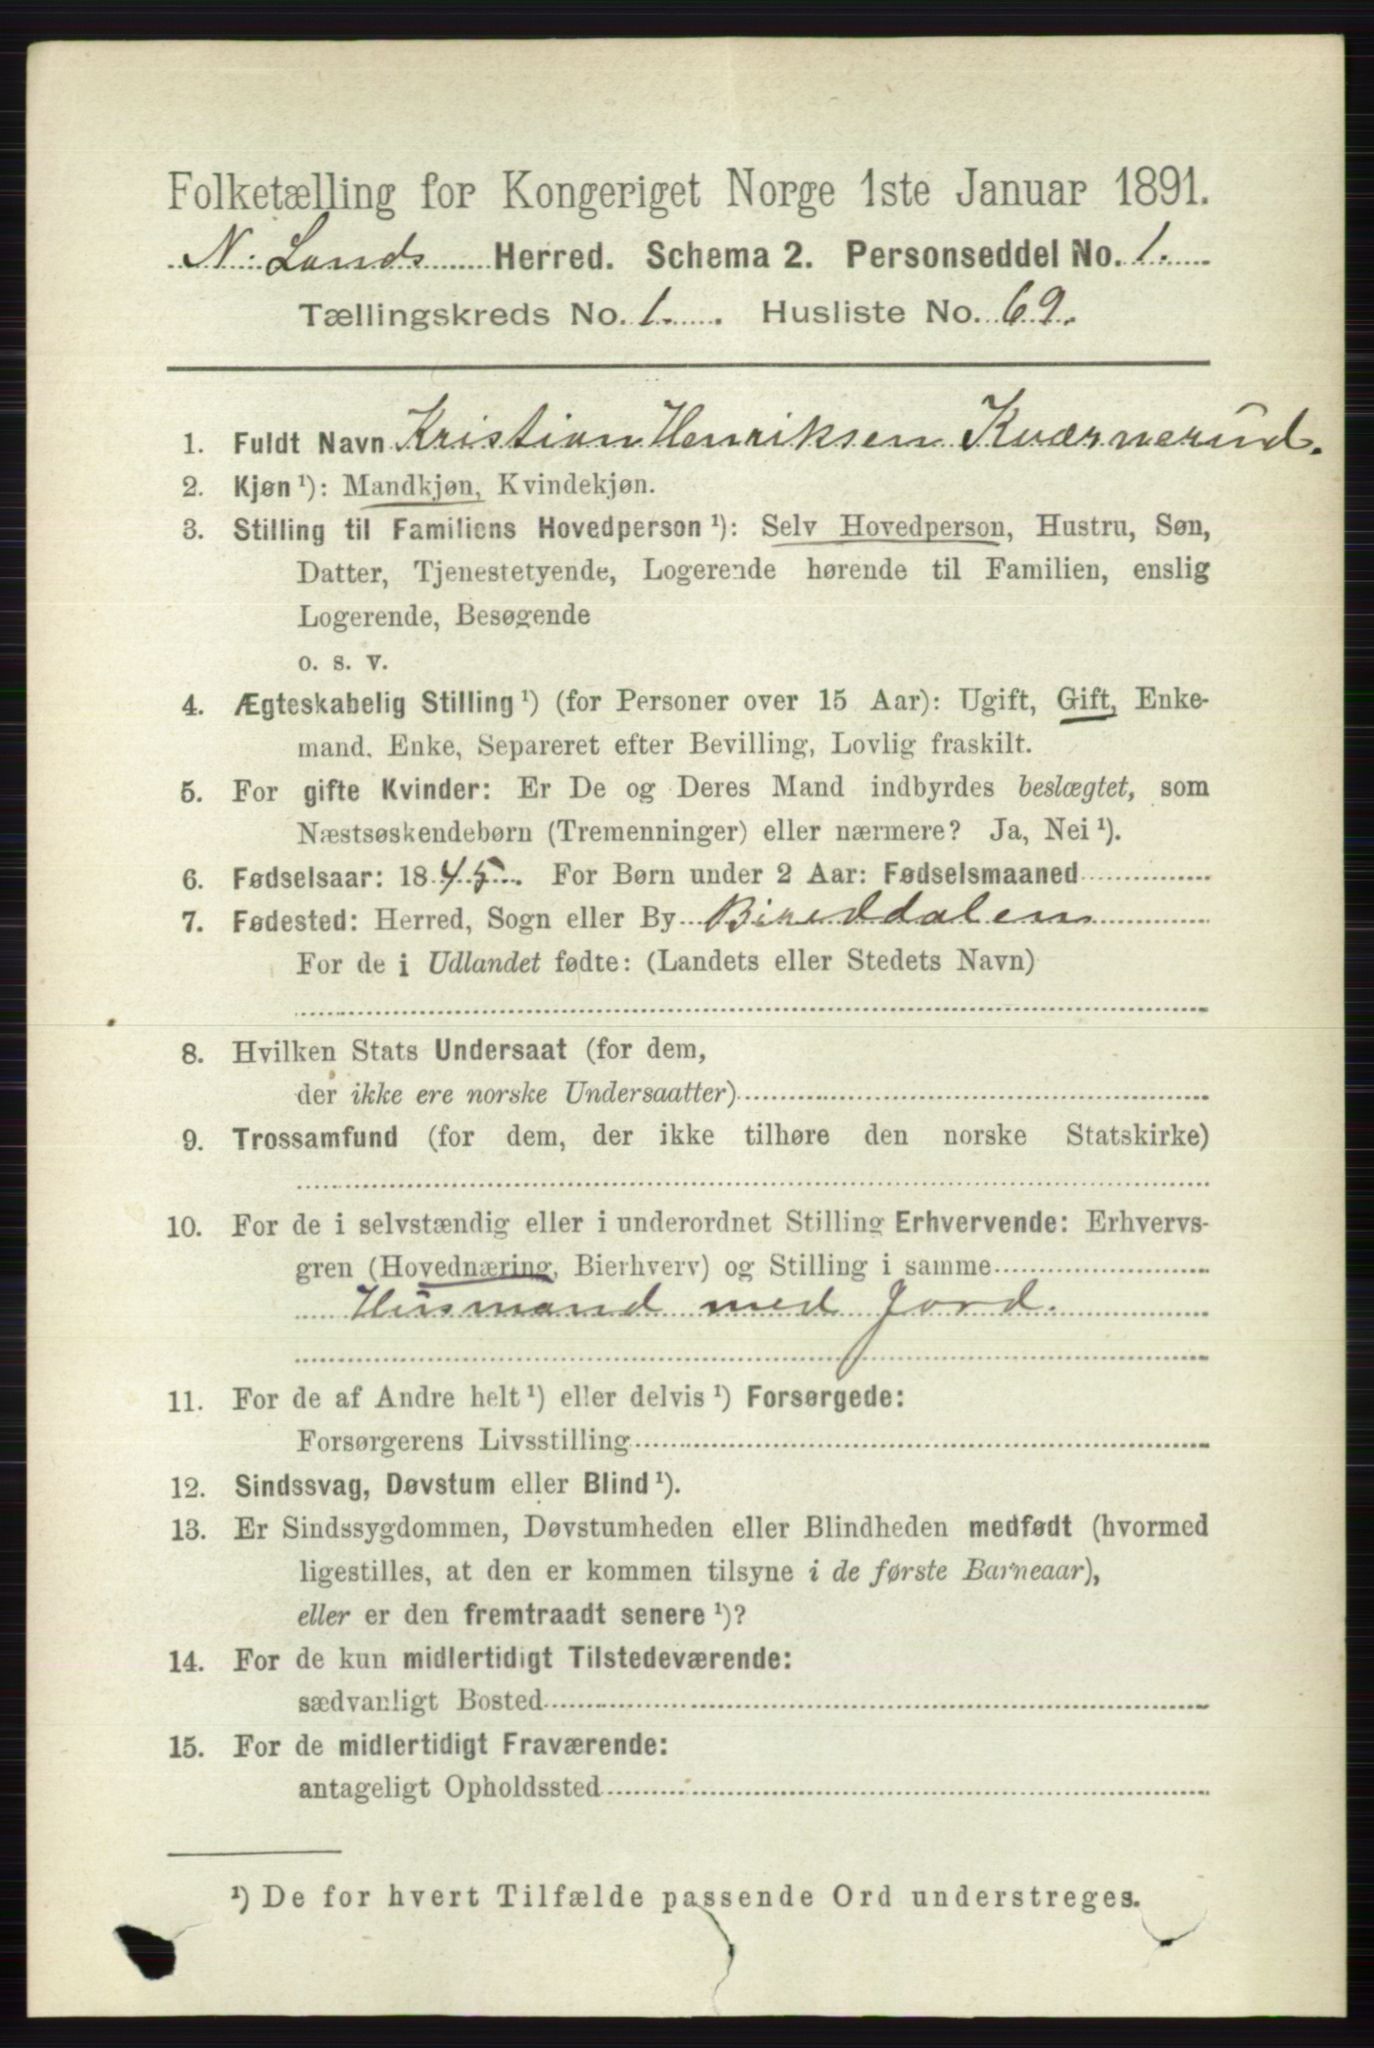 Folketælling for Kongeriget Norge 1ste Januar 1891.
N. Lands Herred. Schema 2. Personseddel No. 1.
Tællingskreds No. 1. Husliste No. 69.
1. Fuldt Navn Kristian Henriksen Kværnerud.
2. Kjøn ¹): Mandkjøn, Kvindekjøn.
3. Stilling til Familiens Hovedperson ¹): Selv Hovedperson, Hustru, Søn,
Datter, Tjenestetyende, Logerende hørende til Familien, enslig
Logerende, Besøgende
o. s. v.
4. Ægteskabelig Stilling ¹) (for Personer over 15 Aar): Ugift, Gift, Enke-
mand. Enke, Separeret efter Bevilling, Lovlig fraskilt.
5. For gifte Kvinder: Er De og Deres Mand indbyrdes beslægtet, som
Næstsøskendebørn (Tremenninger) eller nærmere? Ja, Nei ¹).
6. Fødselsaar: 1845. For Børn under 2 Aar: Fødselsmaaned
7. Fødested: Herred, Sogn eller By
For de i Udlandet fødte: (Landets eller Stedets Navn)
8. Hvilken Stats Undersaat (for dem,
der ikke ere norske Undersaatter)
9. Trossamfund (for dem, der ikke tilhøre den norske Statskirke)
10. For de i selvstændig eller i underordnet Stilling Erhvervende: Erhvervs-
gren (Hovednæring, Bierhverv) og Stilling i samme
Husmand med Jord.
11. For de af Andre helt ¹) eller delvis ¹) Forsørgede:
Forsørgerens Livsstilling
12. Sindssvag, Døvstum eller Blind ¹).
13. Er Sindssygdommen, Døvstumheden eller Blindheden medfødt (hvormed
ligestilles, at den er kommen tilsyne i de første Barneaar),
eller er den fremtraadt senere ¹)?
14. For de kun midlertidigt Tilstedeværende:
sædvanligt Bosted
15. For de midlertidigt Fraværende:
antageligt Opholdssted
¹) De for hvert Tilfælde passende Ord understreges.